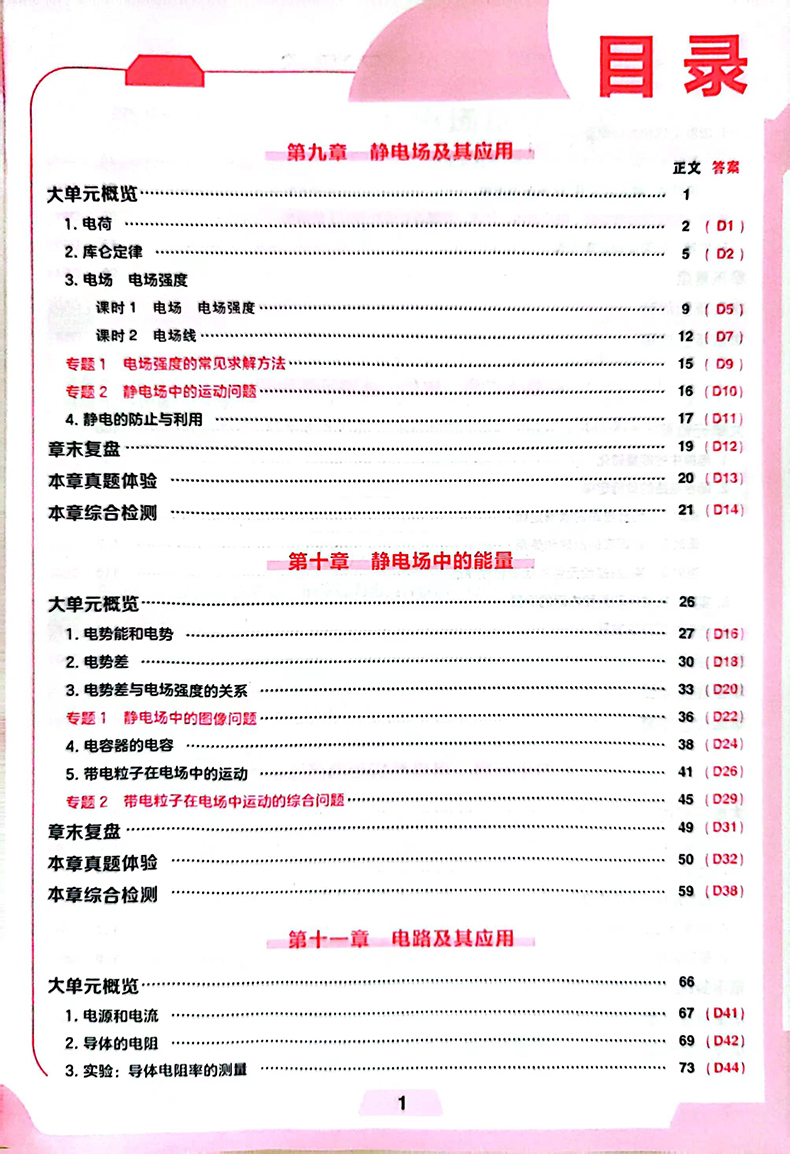 目录
第九章 静电场及其应用
正文 答案
大单元概览 1
1. 电荷 2 (D1)
2. 库仑定律 5 (D2)
3. 电场 电场强度
课时1 电场 电场强度 9 (D5)
课时2 电场线 12 (D7)
专题1 电场强度的常见求解方法 15 (D9)
专题2 静电场中的运动问题 16 (D10)
4. 静电的防止与利用 17 (D11)
章末复盘 19 (D12)
本章真题体验 20 (D13)
本章综合检测 21 (D14)
第十章 静电场中的能量
大单元概览 26
1. 电势能和电势 27 (D16)
2. 电势差 30 (D18)
3. 电势差与电场强度的关系 33 (D20)
专题1 静电场中的图像问题 36 (D22)
4. 电容器的电容 38 (D24)
5. 带电粒子在电场中的运动 41 (D26)
专题2 带电粒子在电场中运动的综合问题 45 (D29)
章末复盘 49 (D31)
本章真题体验 50 (D32)
本章综合检测 59 (D38)
第十一章 电路及其应用
大单元概览 66
1. 电源和电流 67 (D41)
2. 导体的电阻 69 (D42)
3. 实验：导体电阻率的测量 73 (D44)
1